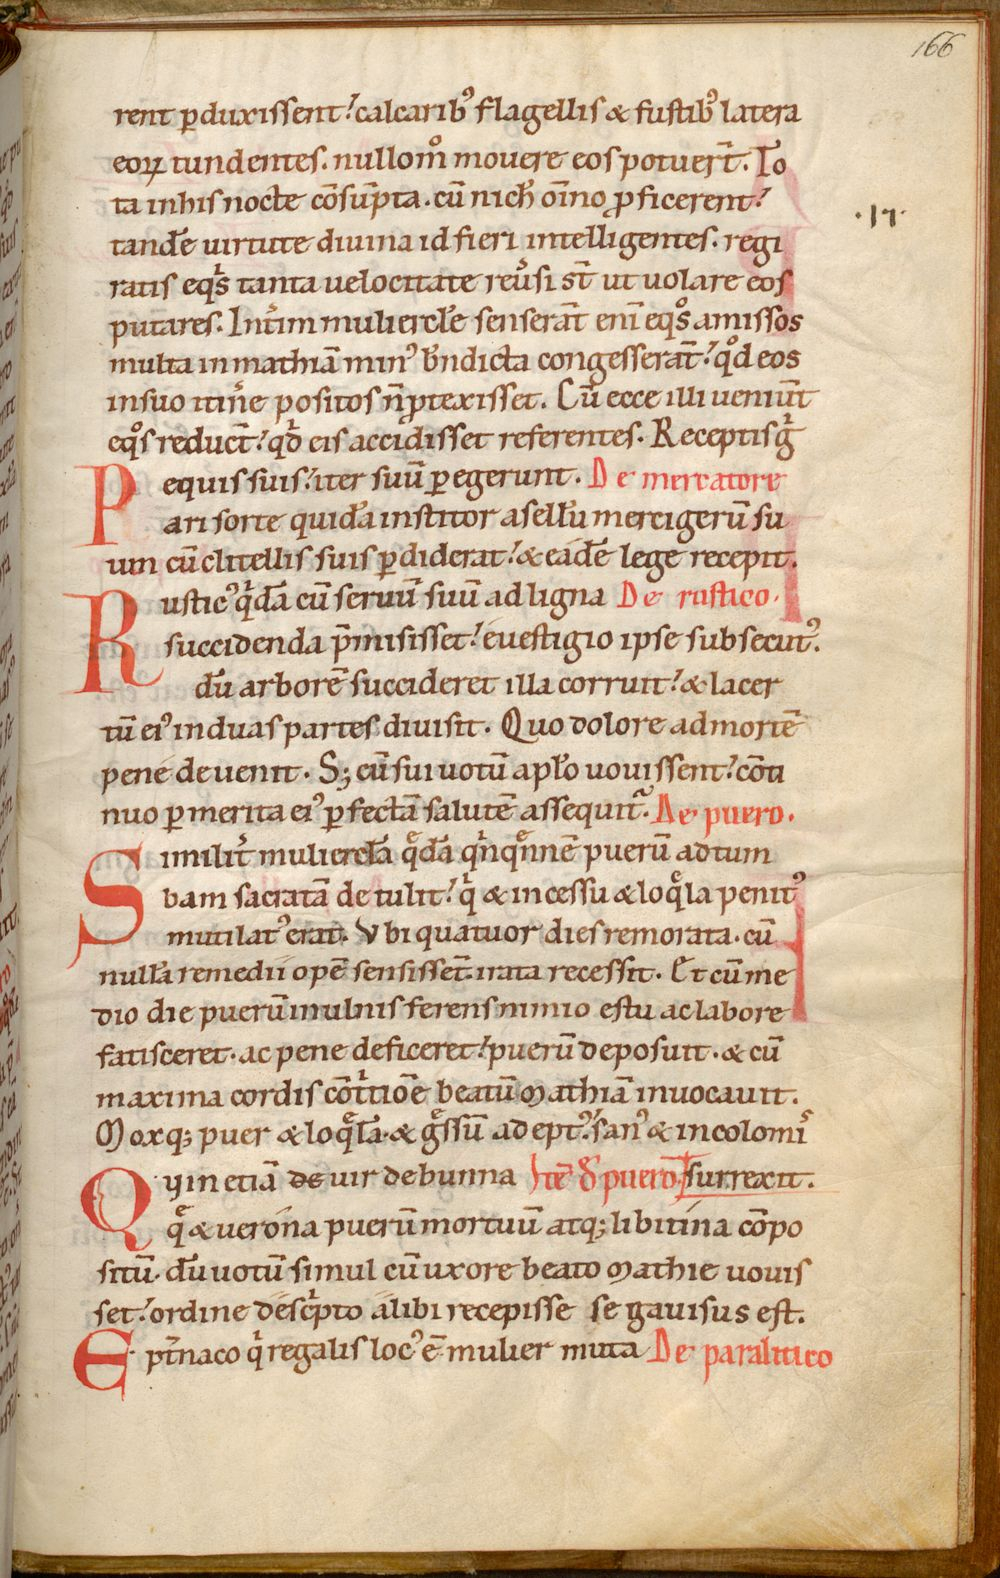 166
rent ꝑduxissent? calcarib᷒ flagellis & fustib᷒ latera
eoꝝ tundentes. nullom̊ mouere eos potuer̄t. To
ta in his nocte cōsūpta. cū nich̄ om̄ino ꝓficerent?
.17.
tandē uirtute diuina id fieri intelligentes. regi
ratis eqͥs tanta uelocitate reu̓si st̄ ut uolare eos
putares. Int̓im muliercl̄e senserāt eni̅ eqͦs amissos
multa in mathiā min᷒ bn̄dicta congesserāt? qͦd eos
in suo itin̓e positos n̄ ꝓtexisset. Cū ecce illi ueniūt
eqͦs reducēt? qd̄ eis accidisset referentes. Receptis gͥ
equis suis? iter suū ꝑegerunt. De mercatore
Pari sorte quidā institor asellū mercigerū su
um cū clitellis suis ꝑdiderat? & eadē lege recepit.
Rustic᷒ qͥdā cū seruū suū ad ligna De rustico.
succidenda p̄misisset? euestigio ipse subsecut᷒.
dū arborē succideret illa corruit? & lacer
tū ei᷒ in duas partes diuisit. Quo dolore ad mortē
pene deuenit. Sꝫ cū sui uotū apl̄o uouissent? cōti
nuo ꝑ merita ei᷒ ꝑfectā salutē assequit᷑. De puero.
Similit̓ muliercl̄ā qͣdā qͥnqͣnnē puerū ad tum
bam sacratā detulit? qͥ & incessu & loqͣla penit᷒
mutilat᷒ erat. Vbi quatuor dies remorata. cū
nullā remedii opē sensisset. irata recessit. Et cū me
dio die puerū in ulnis ferens nimio estu ac labore
fatisceret. ac pene deficeret? puerū deposuit. & cū
maxima cordis cōt̓tioē beatū Mathiā inuocauit.
Moxqꝫ puer & loqͣlā. & gͣssū adept᷒? san᷒ & incolomiͥ
surrexit.
Quin etiā de uir de bunna Itē d̄ puero.
qͣ & uerona puerū mortuū atqꝫ libitina cōpo
sitū. dū uotū simul cū uxore beato Mathie uouis
set? ordine descͥpto alibi recepisse se gauisus est.
E pt̄naco qͥ regalis loc᷒ ē mulier muta De paralitico